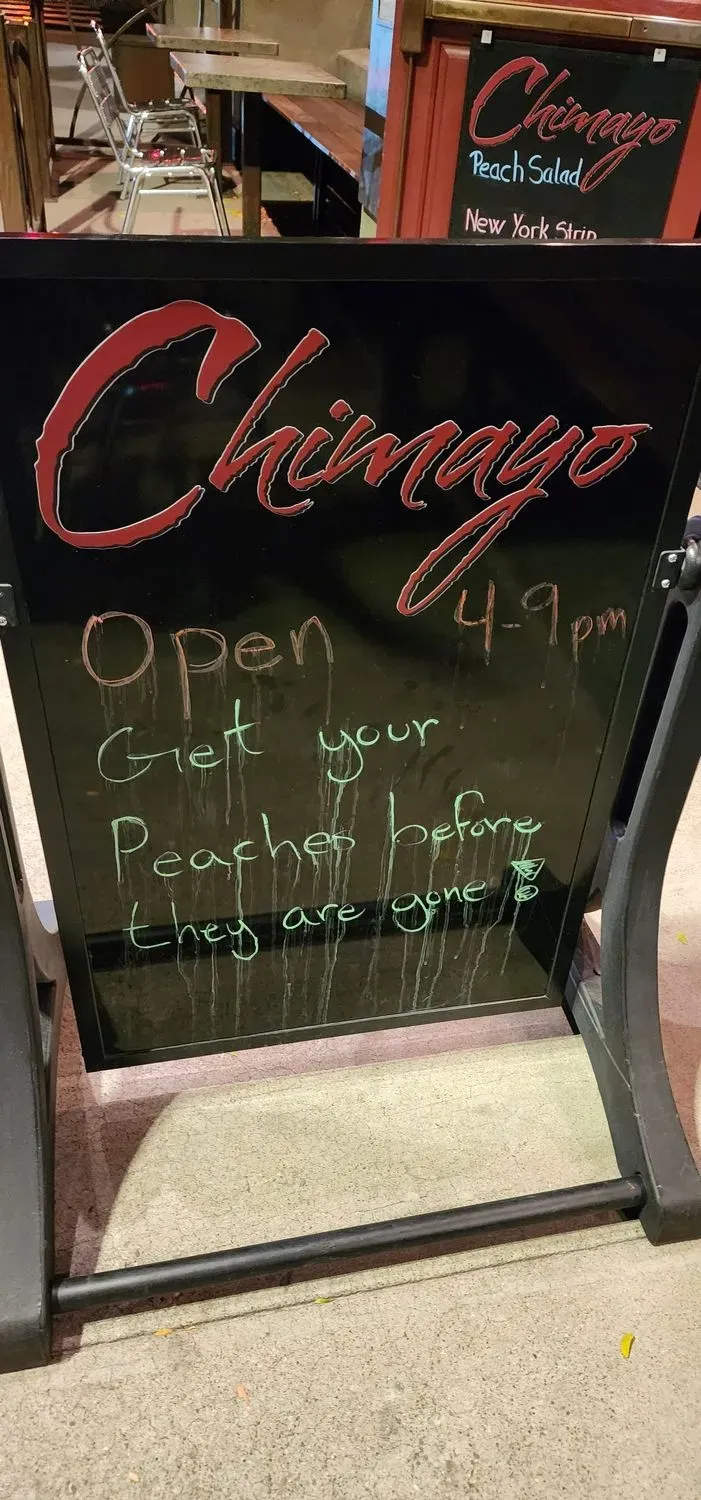 Chimayo
Peach Salad
New York Strip
Chimayo
Open 4-9pm
Get your
Peaches before
they are gone!